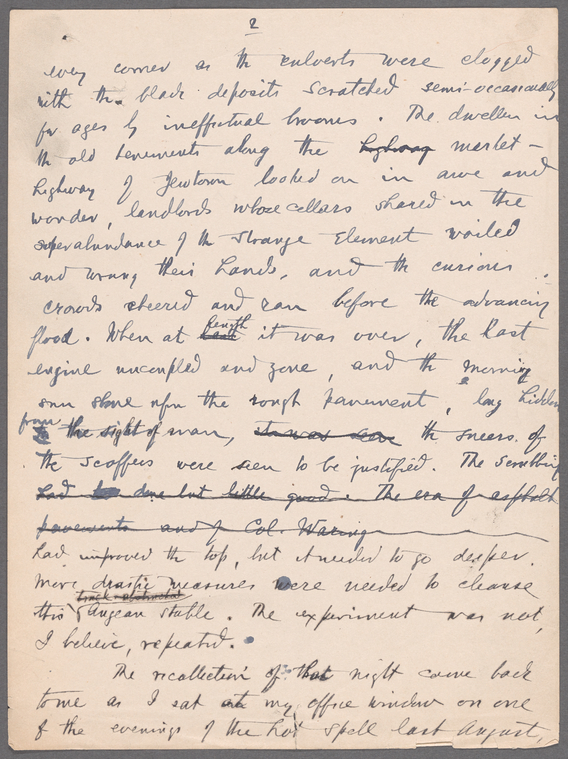 2
every corner as the culverts were clogged
with the black deposits scratched semi-occasionally
for ages by ineffectual brooms. The dwellers in
the old tenements along the highway market-
highway of Jewtown looked on in awe and
wonder, landlords whose cellars shared in the
superabundance of the strange Element wailed
and wrung their hands, and the curious
crowds cheered and ran before the advancing
flood. When at last length it was over, the last
engine uncoupled and gone, and the morning
sun shone upon the rough pavement, long hidden
from the sight of man, it was seen the sneers of
the scoffers were seen to be justified. The scrubbing
had done but little good. The era of asphalt
pavements and of Col. Waring
had improved the top, but it needed to go deeper.
More drastic measures were needed to cleanse
this Augean stable. The experiment was not,
I believe, repeated.
The recollection of that night came back
to me as I sat at my office window on one
of the evenings of the hot spell last August,